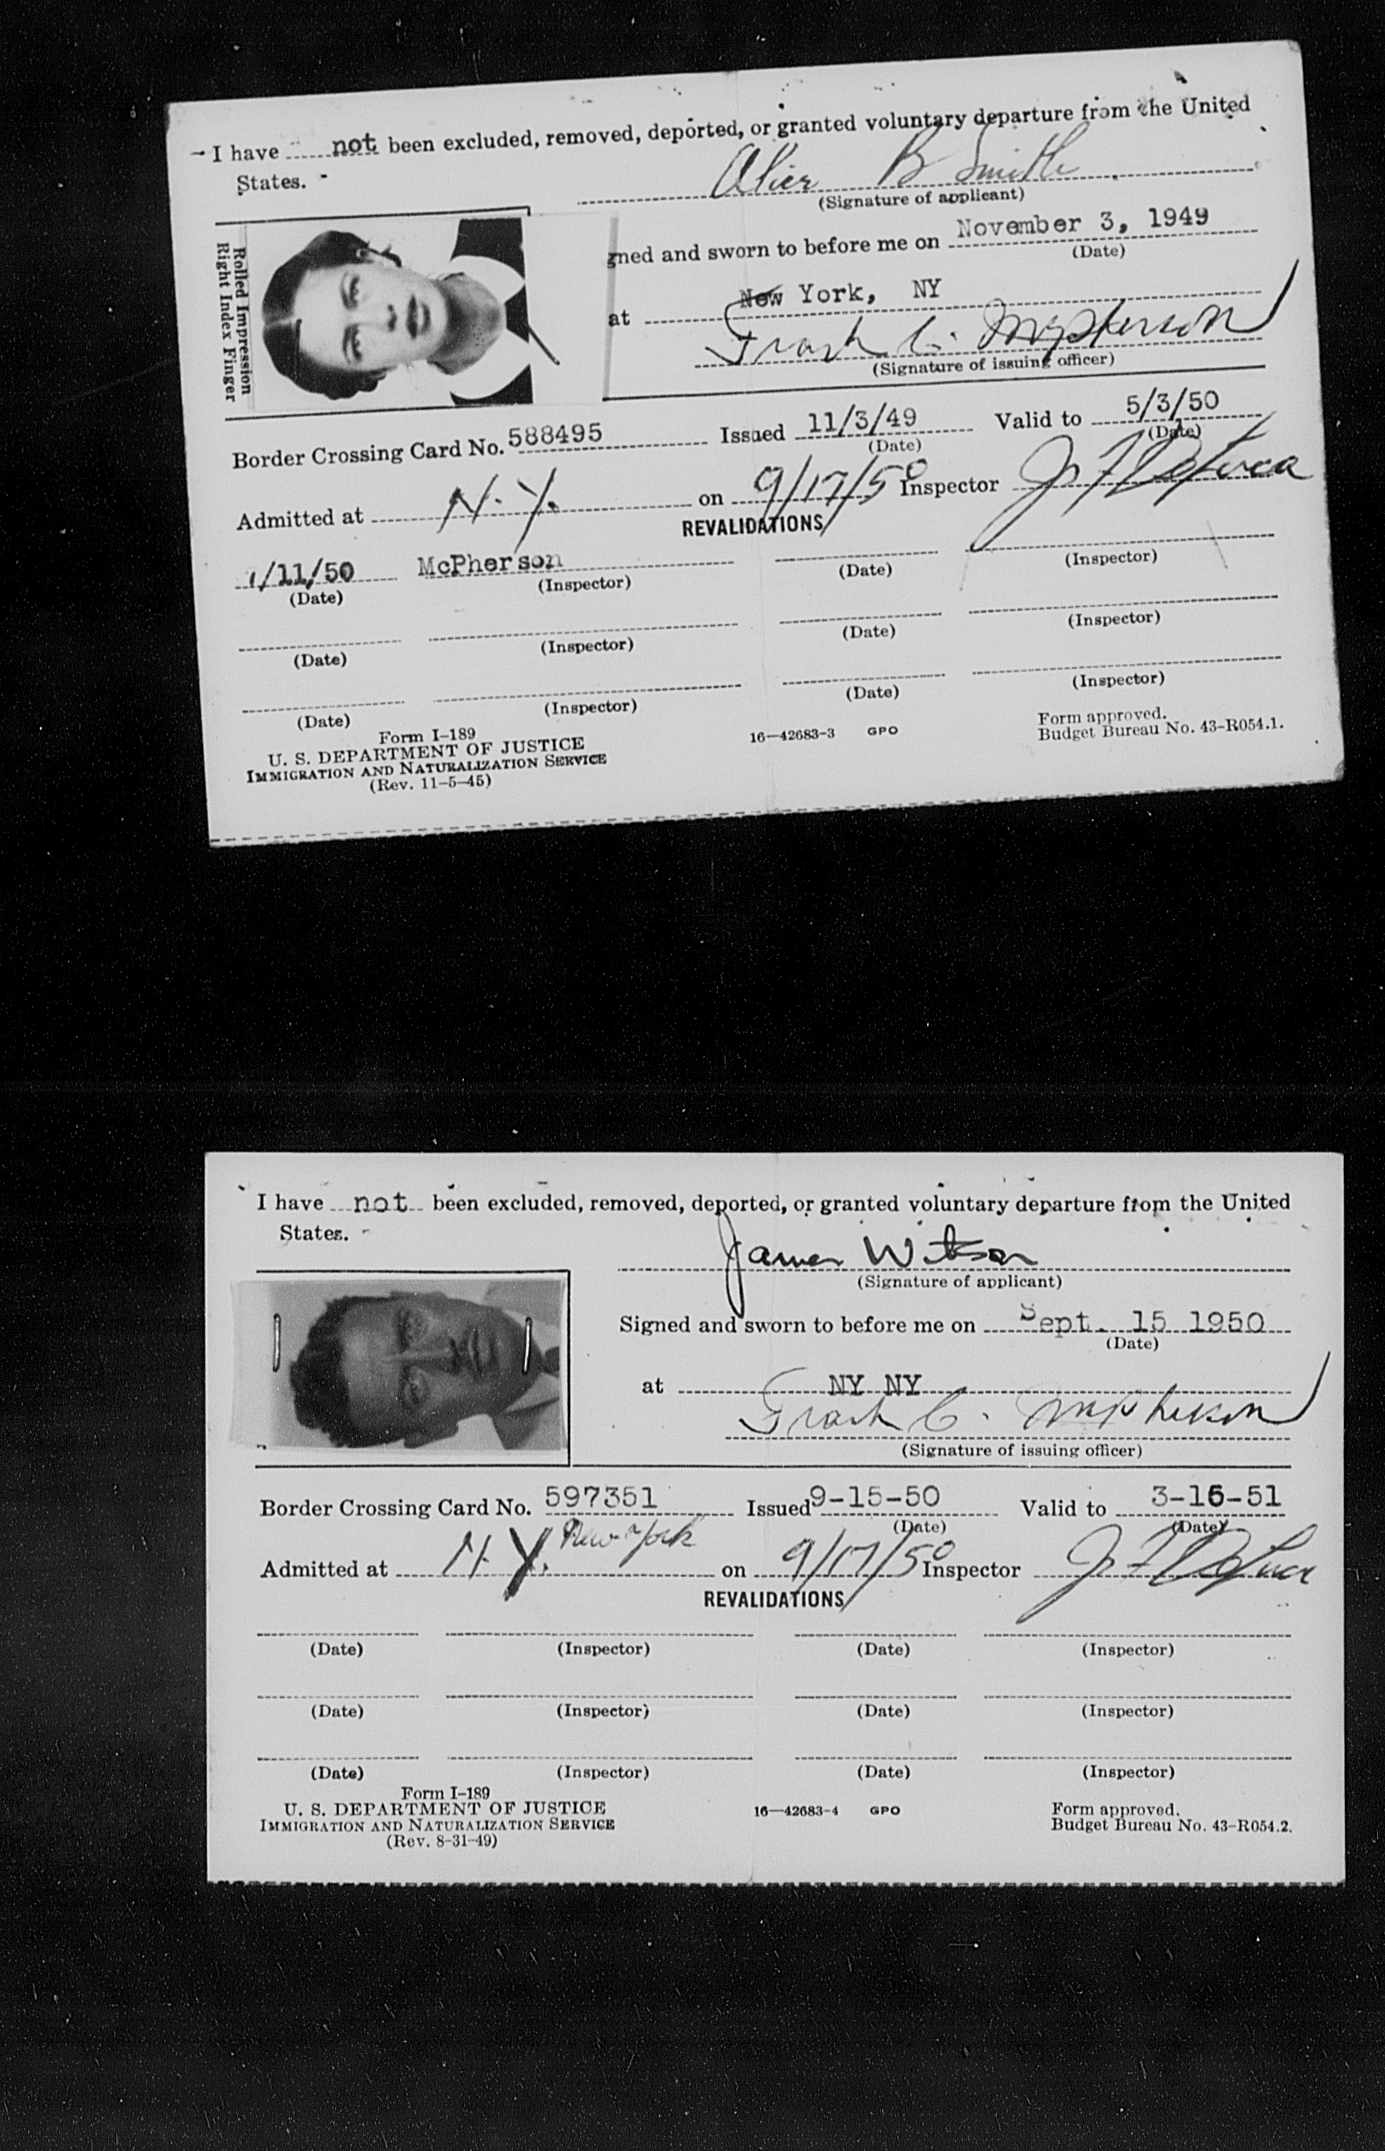 I have not been excluded, removed, deported, or granted voluntary departure from the United
States.
Alice B Smith
(Signature of applicant)
Rolled Impression
Right Index Finger
gned and sworn to before me on November 3, 1949
(Date)
at New York, NY
Frank C. McPherson
(Signature of issuing officer)
Border Crossing Card No. 588495 Issued 11/3/49 Valid to 5/3/50
(Date) (Date)
Admitted at N.Y. on 9/17/50 Inspector
REVALIDATIONS
/11/50 McPherson
(Date) (Inspector) (Date) (Inspector)
(Date) (Inspector) (Date) (Inspector)
(Date) (Inspector) (Date) (Inspector)
Form I-189
U. S. DEPARTMENT OF JUSTICE
IMMIGRATION AND NATURALIZATION SERVICE
(Rev. 11-5-45)
16—42683-3 GPO
Form approved.
Budget Bureau No. 43-R054.1.
I have not been excluded, removed, deported, or granted voluntary departure from the United
States.
James Watson
(Signature of applicant)
Signed and sworn to before me on Sept. 15 1950
(Date)
at NY NY
Frank C. McPherson
(Signature of issuing officer)
Border Crossing Card No. 597351 Issued 9-15-50 Valid to 3-16-51
(Date) (Date)
Admitted at N.Y. New York on 9/17/50 Inspector
REVALIDATIONS
(Date) (Inspector) (Date) (Inspector)
(Date) (Inspector) (Date) (Inspector)
(Date) (Inspector) (Date) (Inspector)
Form I-189
U. S. DEPARTMENT OF JUSTICE
IMMIGRATION AND NATURALIZATION SERVICE
(Rev. 8-31-49)
16—42683-4 GPO
Form approved.
Budget Bureau No. 43-R054.2.